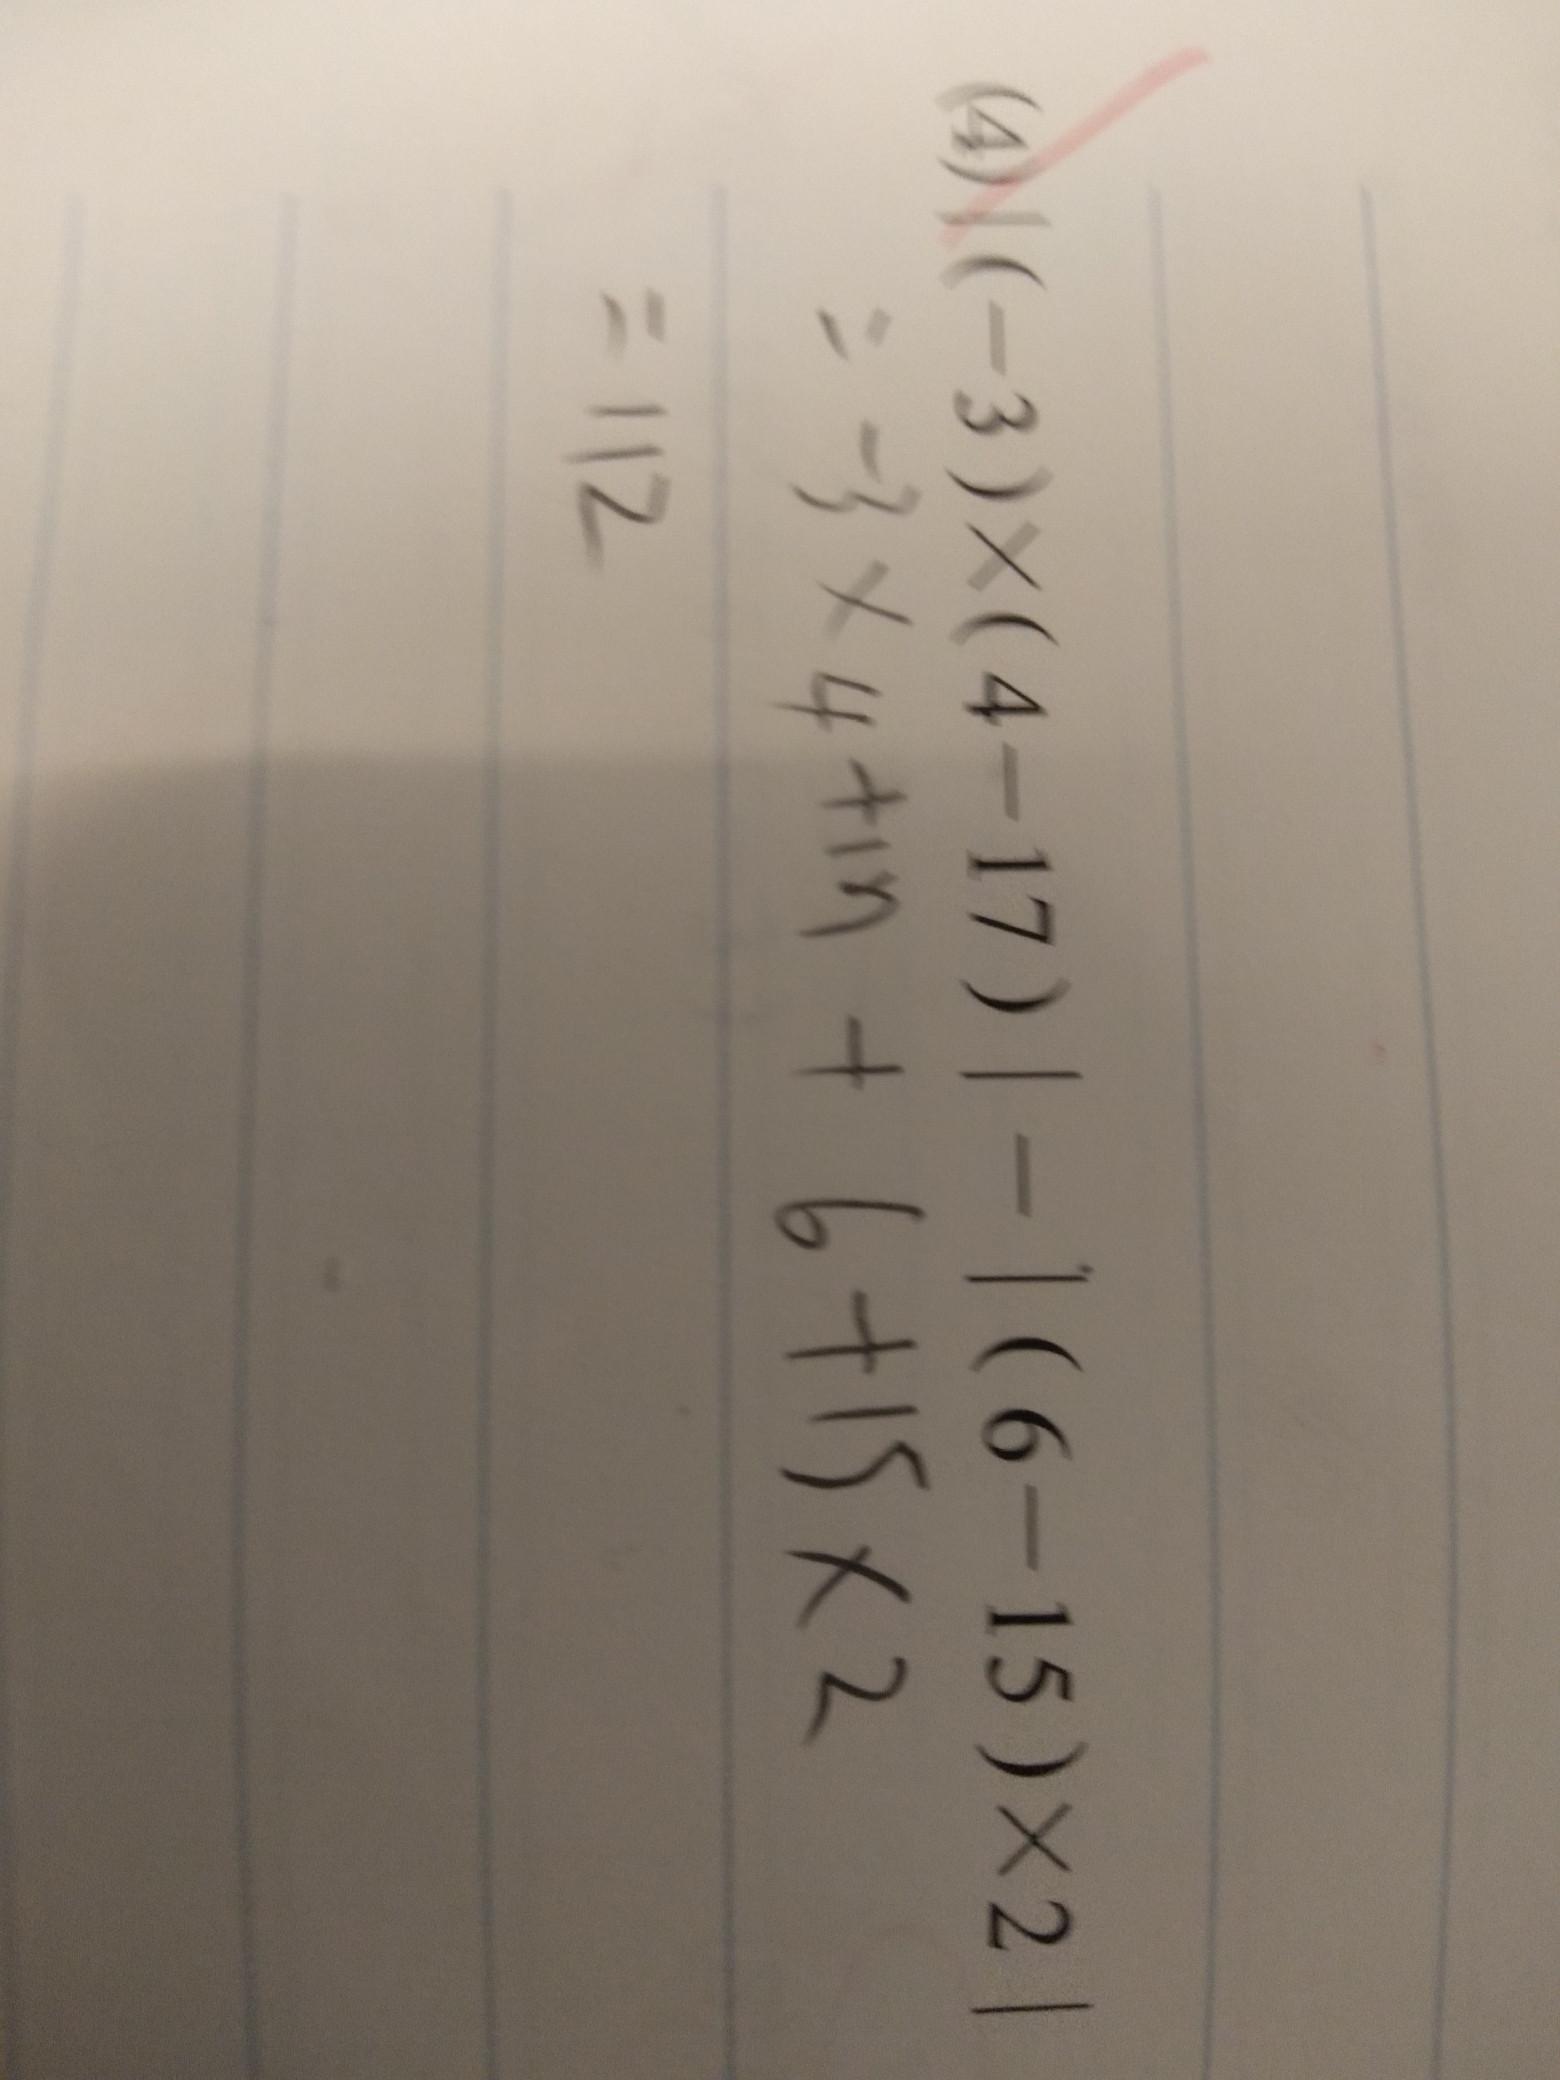 (4) |(-3)×(4-17)|-|(6-15)×2|
= -3×4+17 + 6+15×2
= 112